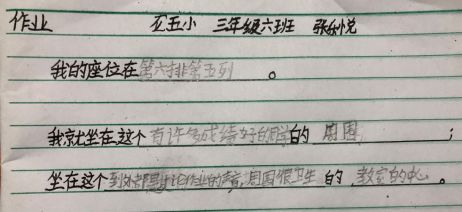 作业 五小 三年级六班 张悦
我的座位在第六排第五列。
我就坐在这个有许多成绩好的同学的 周围；
坐在这个到处都是讨论作业的声音,周围很卫生 的 教室的中心。